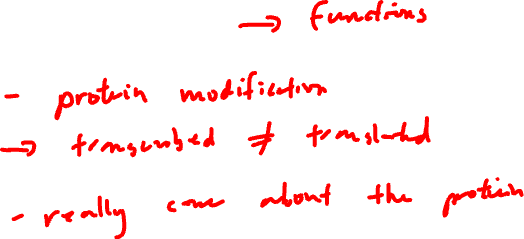 → functions
- protein modification
→ transcribed ≠ translated
- really care about the protein